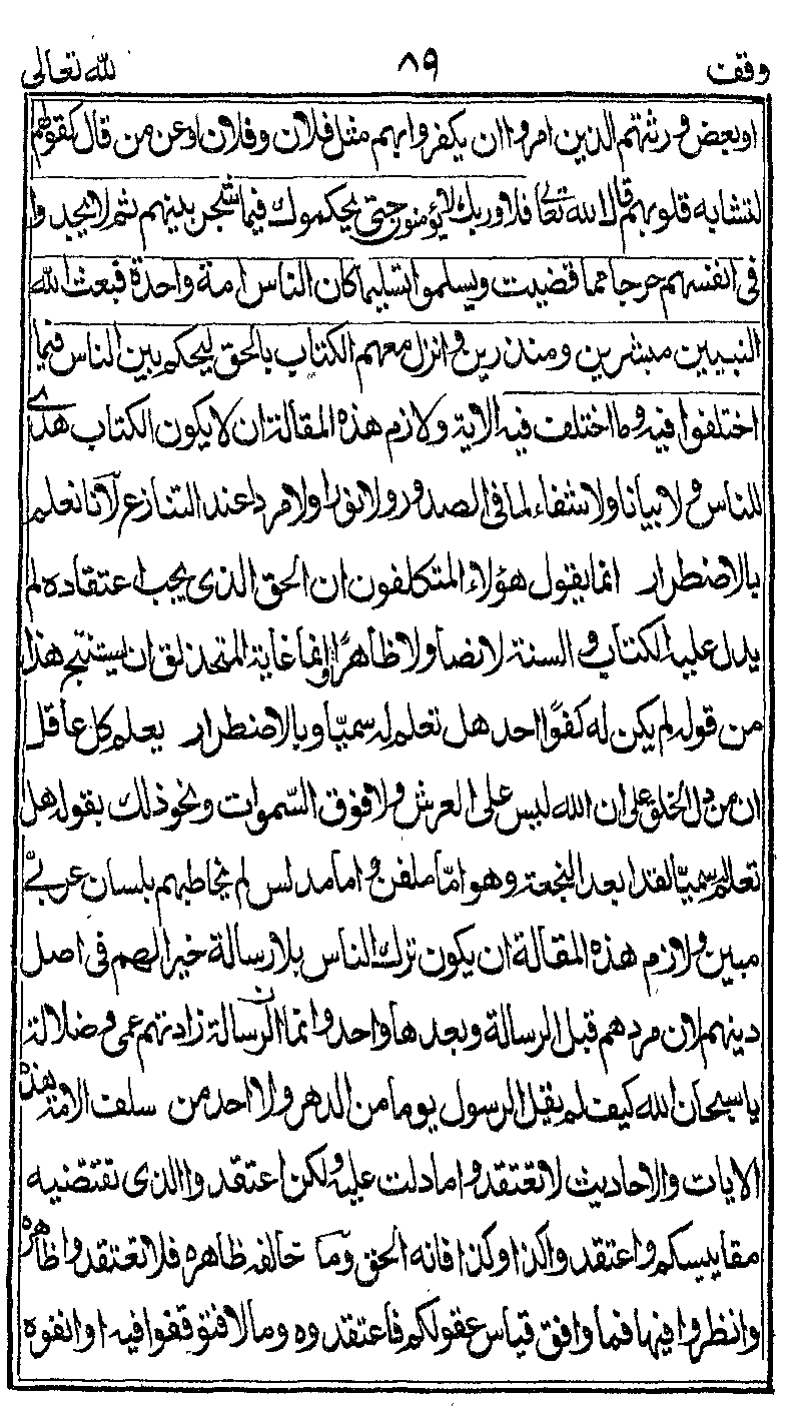 وقف ٨٩ لله تعالى
او بعض ورثتهم الذين امروا ان يكفروا بهم مثل فلان وفلان او عن من قال كقولهم
لتشابه قلوبهم قال الله تعالى فلا وربك لا يؤمنون حتى يحكموك فيما شجر بينهم ثم لا يجدوا
فى انفسهم حرجا مما قضيت ويسلموا تسليما كان الناس امة واحدة فبعث الله
النبيين مبشرين ومنذرين وانزل معهم الكتاب بالحق ليحكم بين الناس فيما
اختلفوا فيه وما اختلف فيه الآية ولازم هذه المقالة ان لا يكون الكتاب هدى
للناس ولا بيانا ولا شفاء لما فى الصدور ولا نورا ولا مردا عند التنازع لأنا نعلم
بالاضطرار انما يقول هؤلاء المتكلفون ان الحق الذى يجب اعتقاده لم
يدل عليه الكتاب و السنة لا نصا ولا ظاهرًا وانما غاية المتحذلق ان يستنتج هذا
من قوله لم يكن له كفوًا احد هل تعلم له سميّا وبالاضطرار يعلم كل عاقل
ان من دل الخلق على ان الله ليس على العرش ولا فوق السّموات ونحو ذلك بقوله هل
تعلم له سميّا لقد ابعد النجعة وهو امّا ملغز و اما مدلس لم يخاطبهم بلسان عربىّ
مبين ولازم هذه المقالة ان يكون ترك الناس بلا رسالة خيرا لهم فى اصل
دينهم لان مردهم قبل الرسالة وبعدها واحد وانما الرسالة زادتهم عمى وضلالة
يا سبحان الله كيف لم يقل الرسول يوما من الدهر ولا احد من سلف الامة هذه
الايات والاحاديث لا تعتقدوا ما دلت عليه ولكن اعتقدوا الذى تقتضيه
مقاييسكم واعتقدوا كذا وكذا فانه الحق وما خالفه ظاهره فلا تعتقدوا ظاهره
وانظروا فيها فما وافق قياس عقولكم فاعتقدوه وما لا فتوقفوا فيه او انفوه